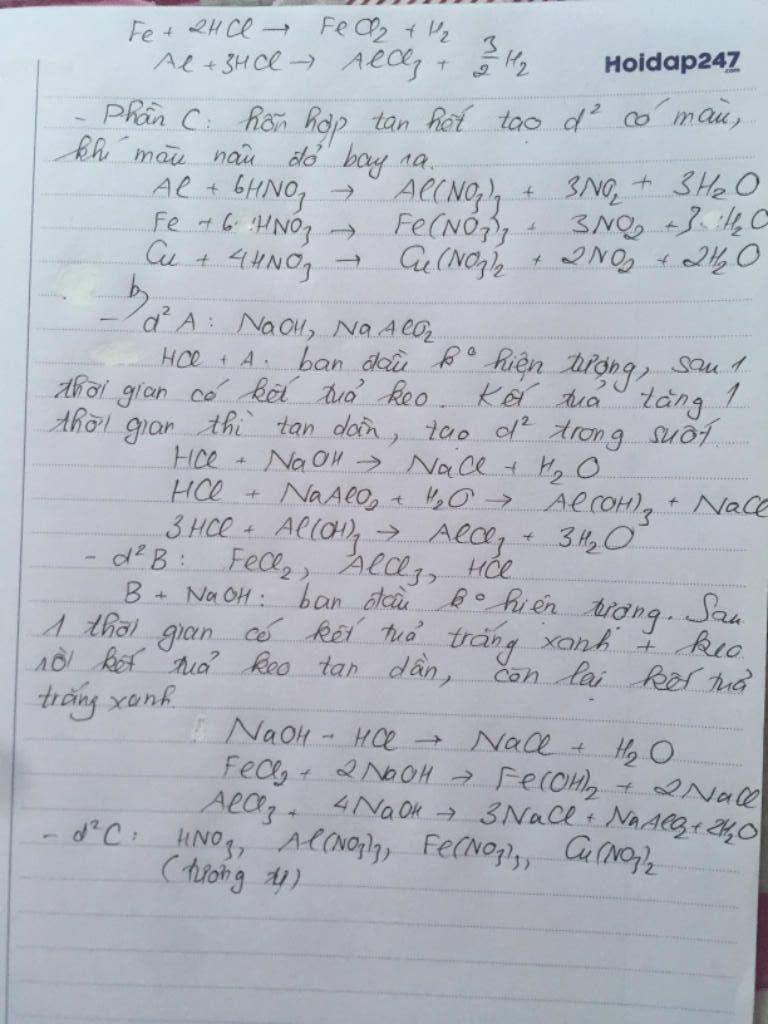 Fe + 2HCl → FeCl₂ + H₂
Al + 3HCl → AlCl₃ + 3/2 H₂
Hoidap247
.com
- Phần C: hỗn hợp tan hết tạo d² có màu,
khí màu nâu đỏ bay ra.
Al + 6HNO₃ → Al(NO₃)₃ + 3NO₂ + 3H₂O
Fe + 6HNO₃ → Fe(NO₃)₃ + 3NO₂ + 3H₂O
Cu + 4HNO₃ → Cu(NO₃)₂ + 2NO₂ + 2H₂O
b,
- d² A: NaOH, NaAlO₂
HCl + A: ban đầu k° hiện tượng, sau 1
thời gian có kết tủa keo. Kết tủa tăng 1
thời gian thì tan dần, tạo d² trong suốt.
HCl + NaOH → NaCl + H₂O
HCl + NaAlO₂ + H₂O → Al(OH)₃ + NaCl
3HCl + Al(OH)₃ → AlCl₃ + 3H₂O
- d² B: FeCl₂, AlCl₃, HCl
B + NaOH: ban đầu k° hiện tượng. Sau
1 thời gian có kết tủa trắng xanh + keo
rồi kết tủa keo tan dần, còn lại kết tủa
trắng xanh.
NaOH + HCl → NaCl + H₂O
FeCl₂ + 2NaOH → Fe(OH)₂ + 2NaCl
AlCl₃ + 4NaOH → 3NaCl + NaAlO₂ + 2H₂O
- d² C: HNO₃, Al(NO₃)₃, Fe(NO₃)₃, Cu(NO₃)₂
(tương tự)